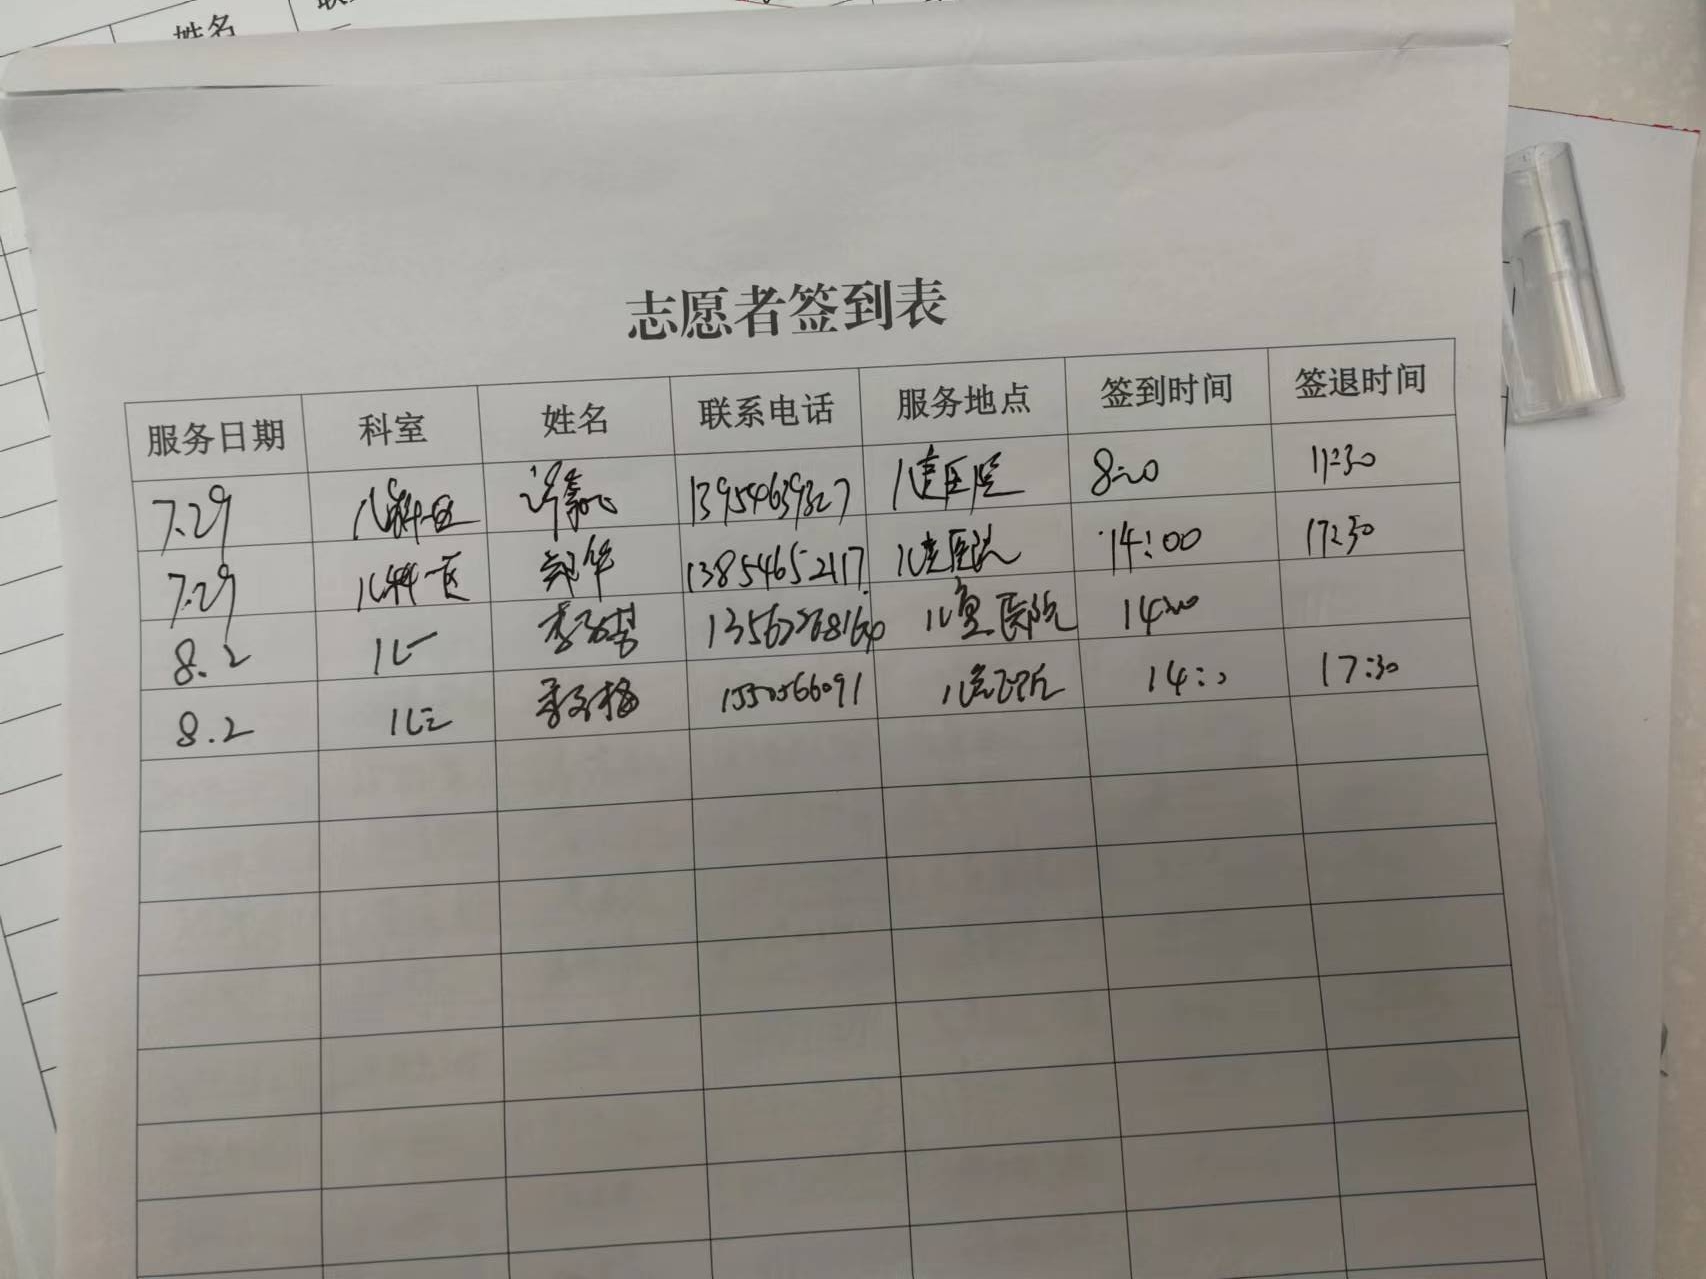 姓名
志愿者签到表
服务日期 科室 姓名 联系电话 服务地点 签到时间 签退时间
7.29 儿科一区 13954639327 儿童医院 8:00 11:30
7.29 儿科一区 郭华 13854652117 儿童医院 14:00 17:30
8.2 儿一 儿童医院 14:00
8.2 儿三 李子梅 15505466091 儿童医院 14:00 17:30